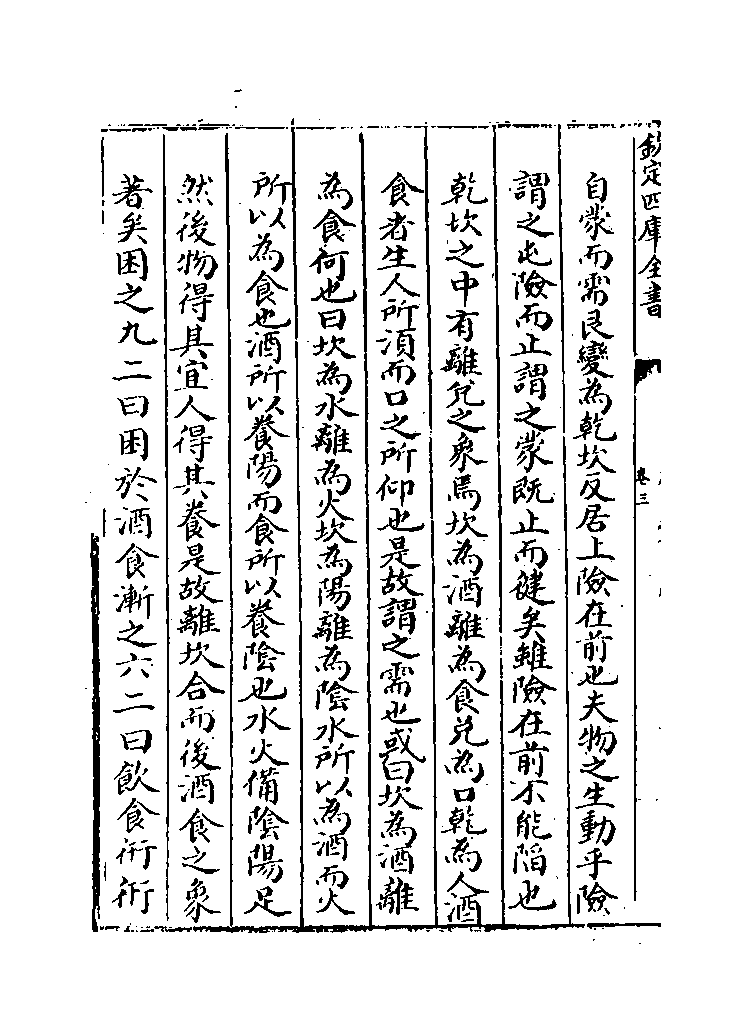 欽定四庫全書
卷三
自蒙而需艮變為乾坎反居上險在前也夫物之生動乎險
謂之屯險而止謂之蒙既止而健矣雖險在前不能陷也
乾坎之中有離兌之象焉坎為酒離為食兌為口乾為人酒
食者生人所須而口之所仰也是故謂之需也或曰坎為酒離
為食何也曰坎為水離為火坎為陽離為陰水所以為酒而火
所以為食也酒所以養陽而食所以養陰也水火備陰陽足
然後物得其宜人得其養是故離坎合而後酒食之象
著矣困之九二曰困於酒食漸之六二曰飲食衎衎